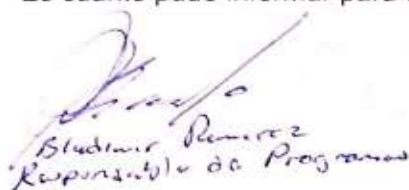 Es cuanto pudo informar para
Bladimir Ramirez
Responsable de Programas